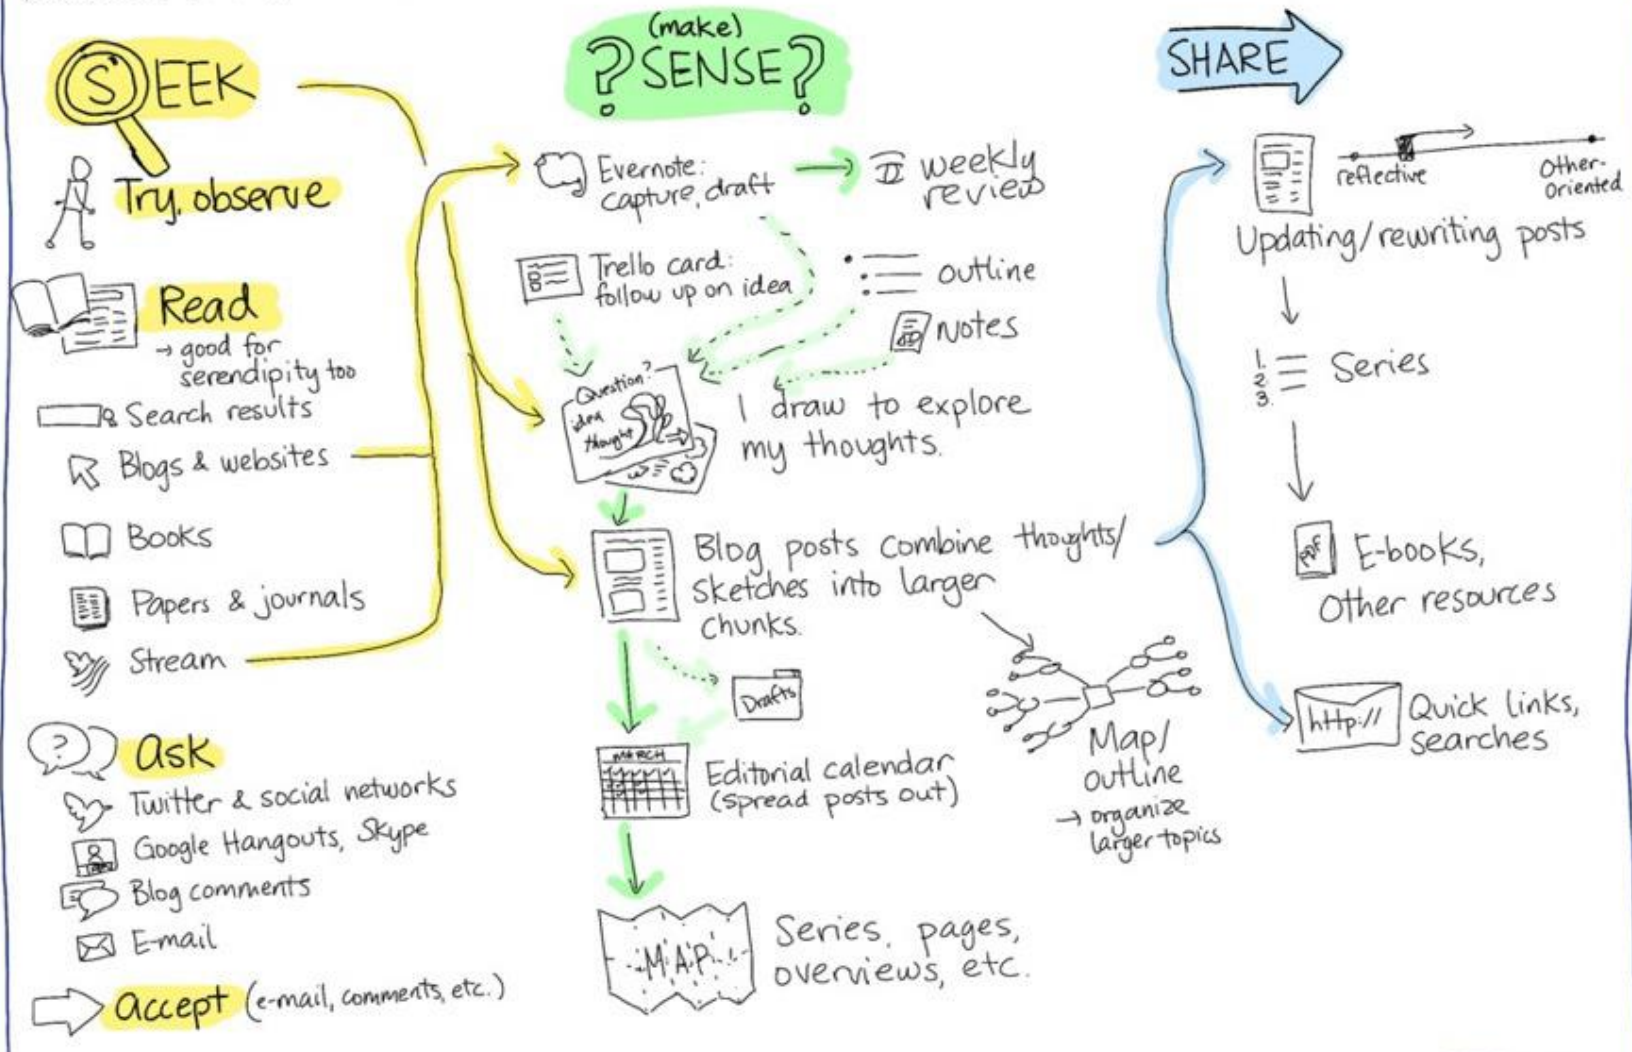 SEEK
Try, observe
Read
→ good for
serendipity too
Search results
Blogs & websites
Books
Papers & journals
Stream
?
ask
Twitter & social networks
Google Hangouts, Skype
Blog comments
E-mail
accept (e-mail, comments, etc.)
(make)
? SENSE ?
Evernote:
capture, draft
weekly
review
Trello card:
follow up on idea
outline
Notes
Question?
idea
thought
I draw to explore
my thoughts.
Blog posts combine thoughts/
sketches into larger
chunks.
Drafts
MARCH
Editorial calendar
(spread posts out)
Map/
outline
→ organize
larger topics
MAP
Series, pages,
overviews, etc.
SHARE
reflective
Other-
oriented
Updating/rewriting posts
1.
2.
3.
Series
PDF
E-books,
Other resources
http://
Quick links,
searches